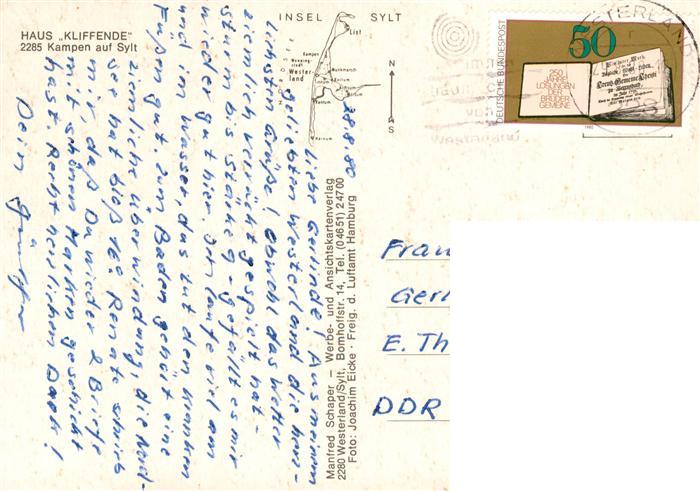 HAUS „KLIFFENDE"
2285 Kampen auf Sylt
INSEL SYLT
List
Kampen
Wenning-
stedt
Wester-
land
Munkmarsch
Keitum
Rantum
Hörnum
N
S
28.8.80
Liebe Gerlinde! Aus meinem
geliebten Westerland die herz-
lichsten Grüße, obwohl das Wetter
ziemlich verrückt gespielt hat -
Sturm bis Stärke 9 - gefällt es mir
wieder gut hier. Ich laufe viel am
und Wasser, das tut den kranken
Füßen gut. Zum Baden gehört eine
ziemliche Überwindung, die Nord-
see hat bloß 16°. Renate schrieb
mir, daß Du wieder 2 Briefe
mit schönen Marken geschickt
hast. Recht herzlichen Dank!
Dein Günther
Manfred Schaper — Werbe- und Ansichtskartenverlag
2280 Westerland/Sylt, Bomhoffstr. 14, Tel. (04651) 24700
Foto: Joachim Eicke · Freig. d. Luftamt Hamburg
DEUTSCHE BUNDESPOST
50
250
JAHRE
LOSUNGEN
DER
BRÜDER
GEMEINE
1980
WESTERLAND
Westerland
Frau
Gerl
E. Th
DDR